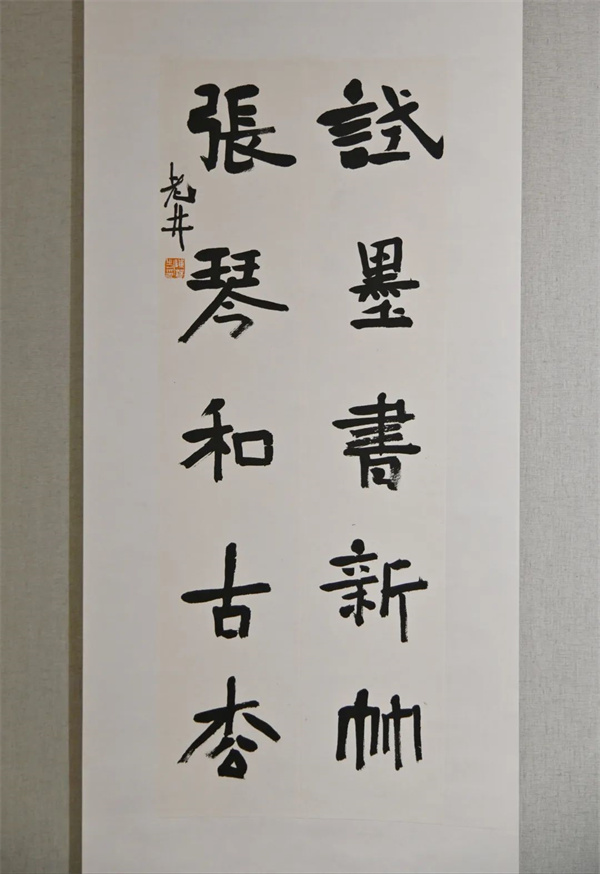 試墨書新竹
張琴和古枩
老井